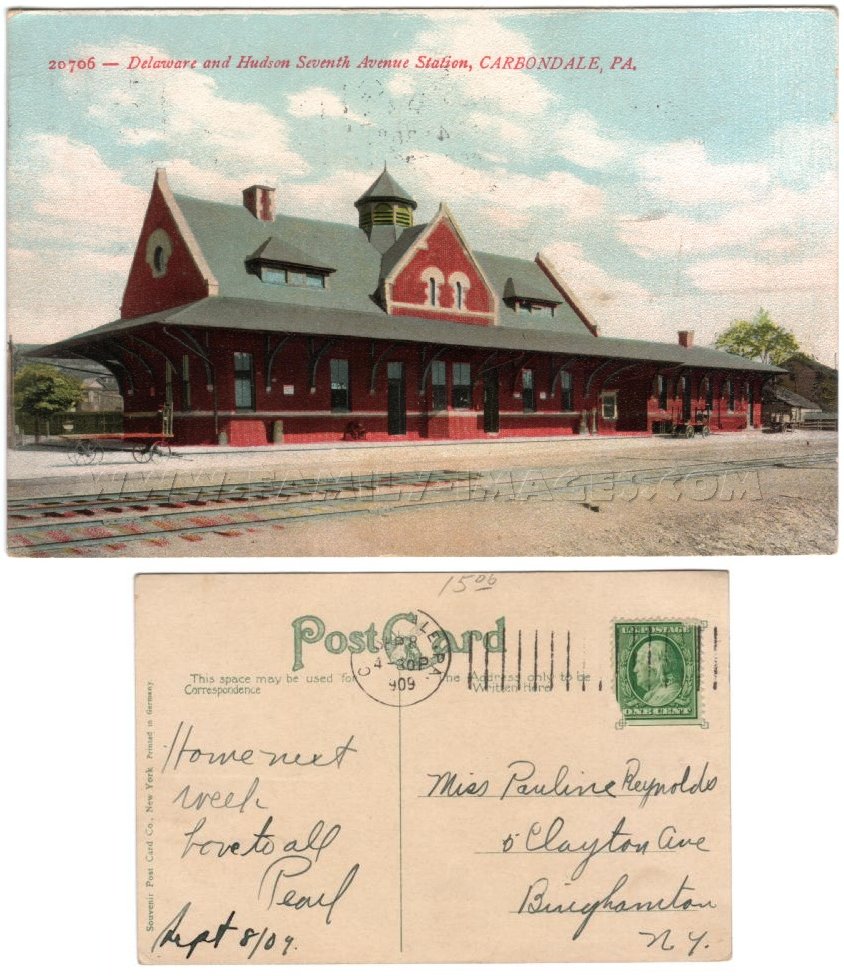 20706 — Delaware and Hudson Seventh Avenue Station, CARBONDALE, PA.
WWW.FAMILY-IMAGES.COM
15 00
Post Card
ALE, PA.
SEP 8
4-30P
909
U.S. POSTAGE
ONE CENT
This space may be used for
Correspondence
The Address only to be
Written Here
Souvenir Post Card Co., New York Printed in Germany.
Home next
week
Love to all
Pearl
Sept 8/09.
Miss Pauline Reynolds
5 Clayton Ave
Binghamton
N.Y.